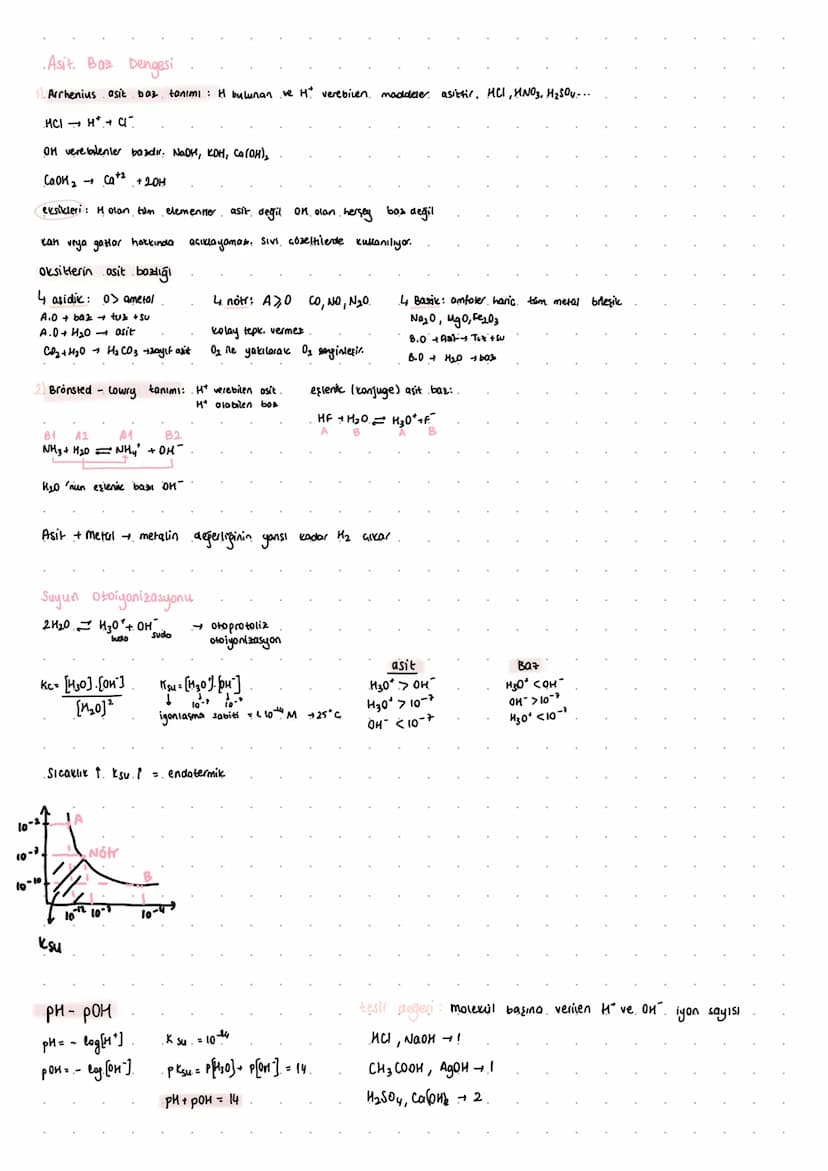 Asit Baz Dengesi
1) Arrhenius asit baz tanımı : H bulunan ve H⁺ verebilen maddeler asittir. HCl, HNO₃, H₂SO₄...
HCl → H⁺ + Cl⁻
OH verebilenler bazdır. NaOH, KOH, Ca(OH)₂
CaOH₂ → Ca⁺² + 2OH
eksikleri : H olan tüm elementler asit değil OH olan herşey baz değil
katı veya gazlar hakkında açıklayamaz. Sıvı çözeltilerde kullanılıyor.
Oksitlerin asit bazlığı
↳ asidik : O> ametal
A.O + baz → tuz + su
A.O + H₂O → asit
CO₂ + H₂O → H₂CO₃ → zayıf asit
↳ nötr : A⩾O CO, NO, N₂O
kolay tepk. vermez
O₂ ile yakılarak O₂ zenginleşir.
↳ Bazik : amfoter hariç tüm metal bileşik
Na₂O, MgO, Fe₂O₃
B.O + Asit → Tuz + su
B.O + H₂O → baz
2) Brönsted - Lowry tanımı : H⁺ verebilen asit
H⁺ alabilen baz
B1 A2 A1 B2
NH₃ + H₂O ⇌ NH₄⁺ + OH⁻
H₂O 'nun eşlenik bazı OH⁻
eşlenik (konjuge) asit baz :
HF + H₂O ⇌ H₃O⁺ + F⁻
A B A B
Asit + Metal → metalin değerliğinin yarısı kadar H₂ çıkar
Suyun Otoiyonizasyonu
2H₂O ⇌ H₃O⁺ + OH⁻ → otoprotoliz
suda otoiyonizasyon
Kc = [H₃O].[OH⁻]
[H₂O]²
Ksu = [H₃O⁺].[OH⁻]
↓ ↓ ↓
10⁻⁷ 10⁻⁷
iyonlaşma sabiti = 1.10⁻¹⁴ M → 25°C
asit
H₃O⁺ > OH⁻
H₃O⁺ > 10⁻⁷
OH⁻ < 10⁻⁷
Baz
H₃O⁺ < OH⁻
OH⁻ > 10⁻⁷
H₃O⁺ < 10⁻⁷
Sıcaklık ↑ Ksu ↑ = endotermik
10⁻² A
10⁻⁷ Nötr
10⁻¹⁰ B
10⁻¹² 10⁻⁷ 10⁻⁴
Ksu
pH - pOH
pH = - log[H⁺]
pOH = - log.[OH⁻]
Ksu = 10⁻¹⁴
pKsu = P[H₃O] + P[OH⁻] = 14
pH + pOH = 14
tesir değeri : molekül başına verilen H⁺ ve OH⁻ iyon sayısı
HCl, NaOH → 1
CH₃COOH, AgOH → 1
H₂SO₄, Ca(OH)₂ → 2